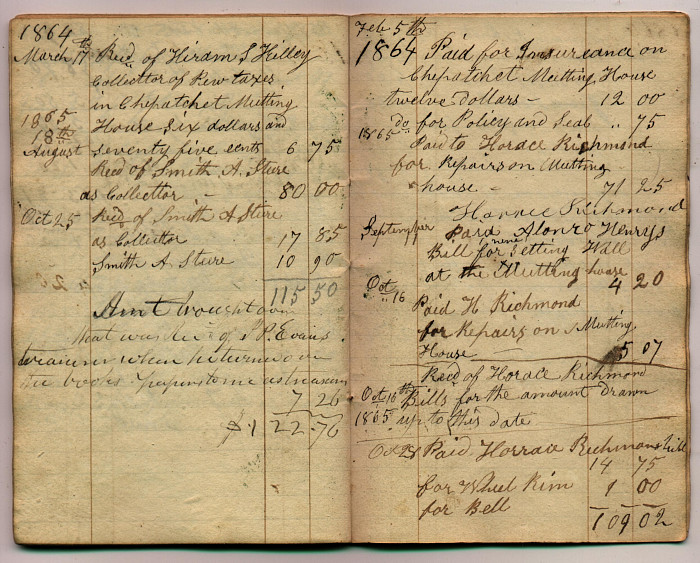 1864
March 17th Recd of Hiram S Kelley
Collecttor of Pew taxes
in Chepatchet Meitting
1865 House Six dollars and
18th August seventy five cents 6 75
Recd of Smith A. Stere
as Collecttor - 80 00
Oct 25 Recd of Smith A Stere
as Collector 17 85
Smith A. Stere 10 90
115 50
Amt brought over
that was Recd of P. Evans
treasurer when he turned over
the books papers to me as treasurer
7 26
$ 122.76
Feb 5th
1864 Paid for Insureance on
Chepatchet Meitting House
twelve dollars - 12 00
do for Policy and Seal " 75
1865 Paid to Horace Richmond
for Repairs on Meitting
house - 71 25
Horace Richmond
September Paid Alonzo Henrys
Bill for setting Wall
at the Meitting house
4 20
Oct 16 Paid H Richmond
for Repairs on Meitting
House 5 07
Recd of Horace Richmond
Oct 16th Bills for the amount drawn
1865 up to this date
Oct 28 Paid Horrace Richmons bill
14 75
for Wheel Rim 1 00
for Bell
109 02